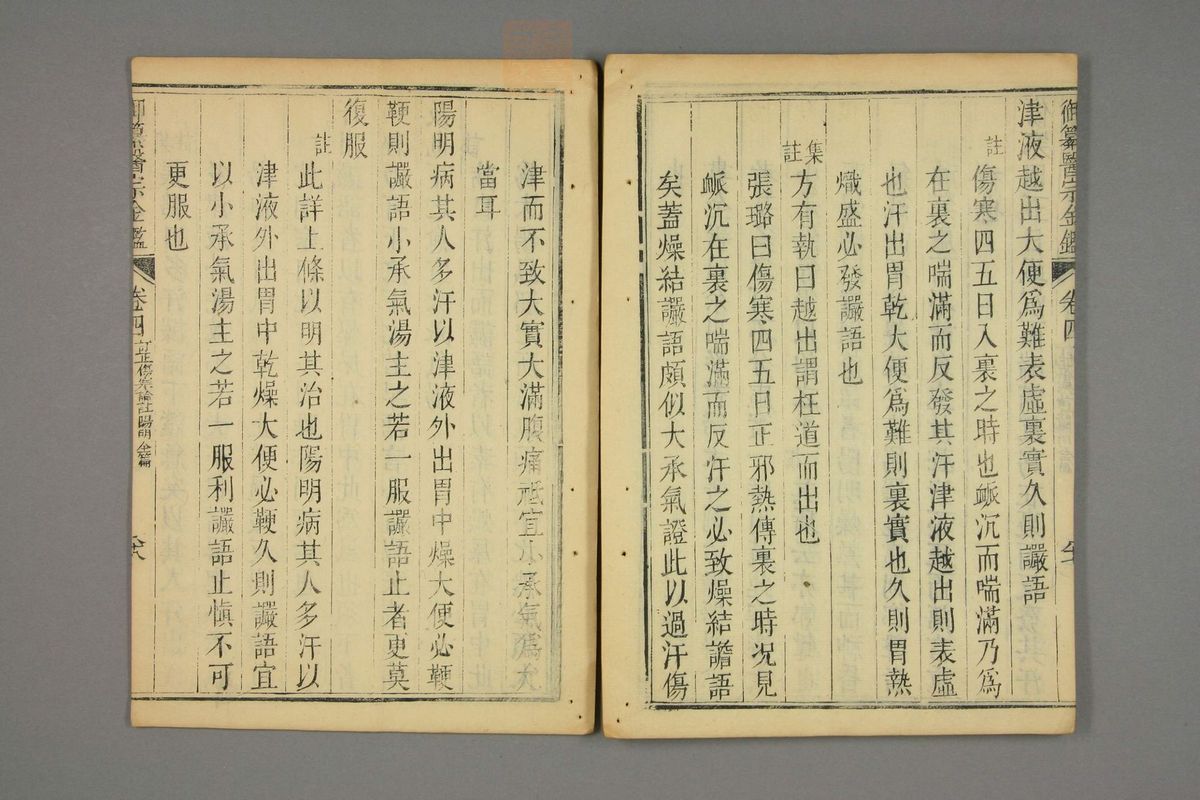 御纂醫宗金鑑
卷四
津液越出大便爲難表虛裏實久則讝語
註
傷寒四五日入裏之時也脈沉而喘滿乃爲
在裏之喘滿而反發其汗津液越出則表虛
也汗出胃乾大便爲難則裏實也久則胃熱
熾盛必發讝語也
集註
方有執曰越出謂枉道而出也
張璐曰傷寒四五日正邪熱傳裏之時况見
脈沉在裏之喘滿而反汗之必致燥結譫語
矣蓋燥結讝語頗似大承氣證此以過汗傷
津而不致大實大滿腹痛祗宜小承氣爲允
當耳
陽明病其人多汗以津液外出胃中燥大便必鞕
鞕則讝語小承氣湯主之若一服讝語止者更莫
復服
註
此詳上條以明其治也陽明病其人多汗以
津液外出胃中乾燥大便必鞕久則讝語宜
以小承氣湯主之若一服利讝語止慎不可
更服也
御纂醫宗金鑑
卷四
訂正傷寒論註陽明全篇